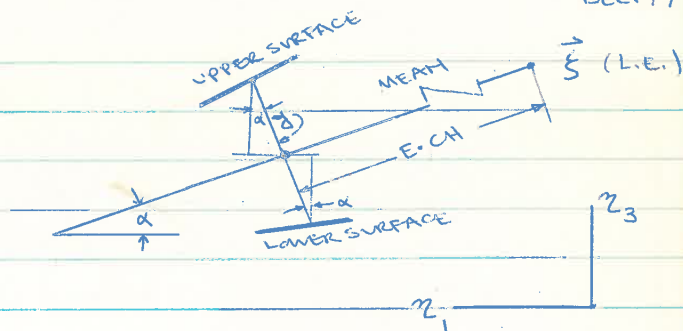 UPPER SURFACE
MEAN
ξ (L.E.)
α
E·CH
α
α
LOWER SURFACE
η3
η1